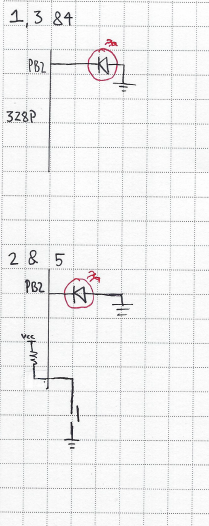 1, 3 &4
PB2
328P
2 & 5
PB2
Vcc